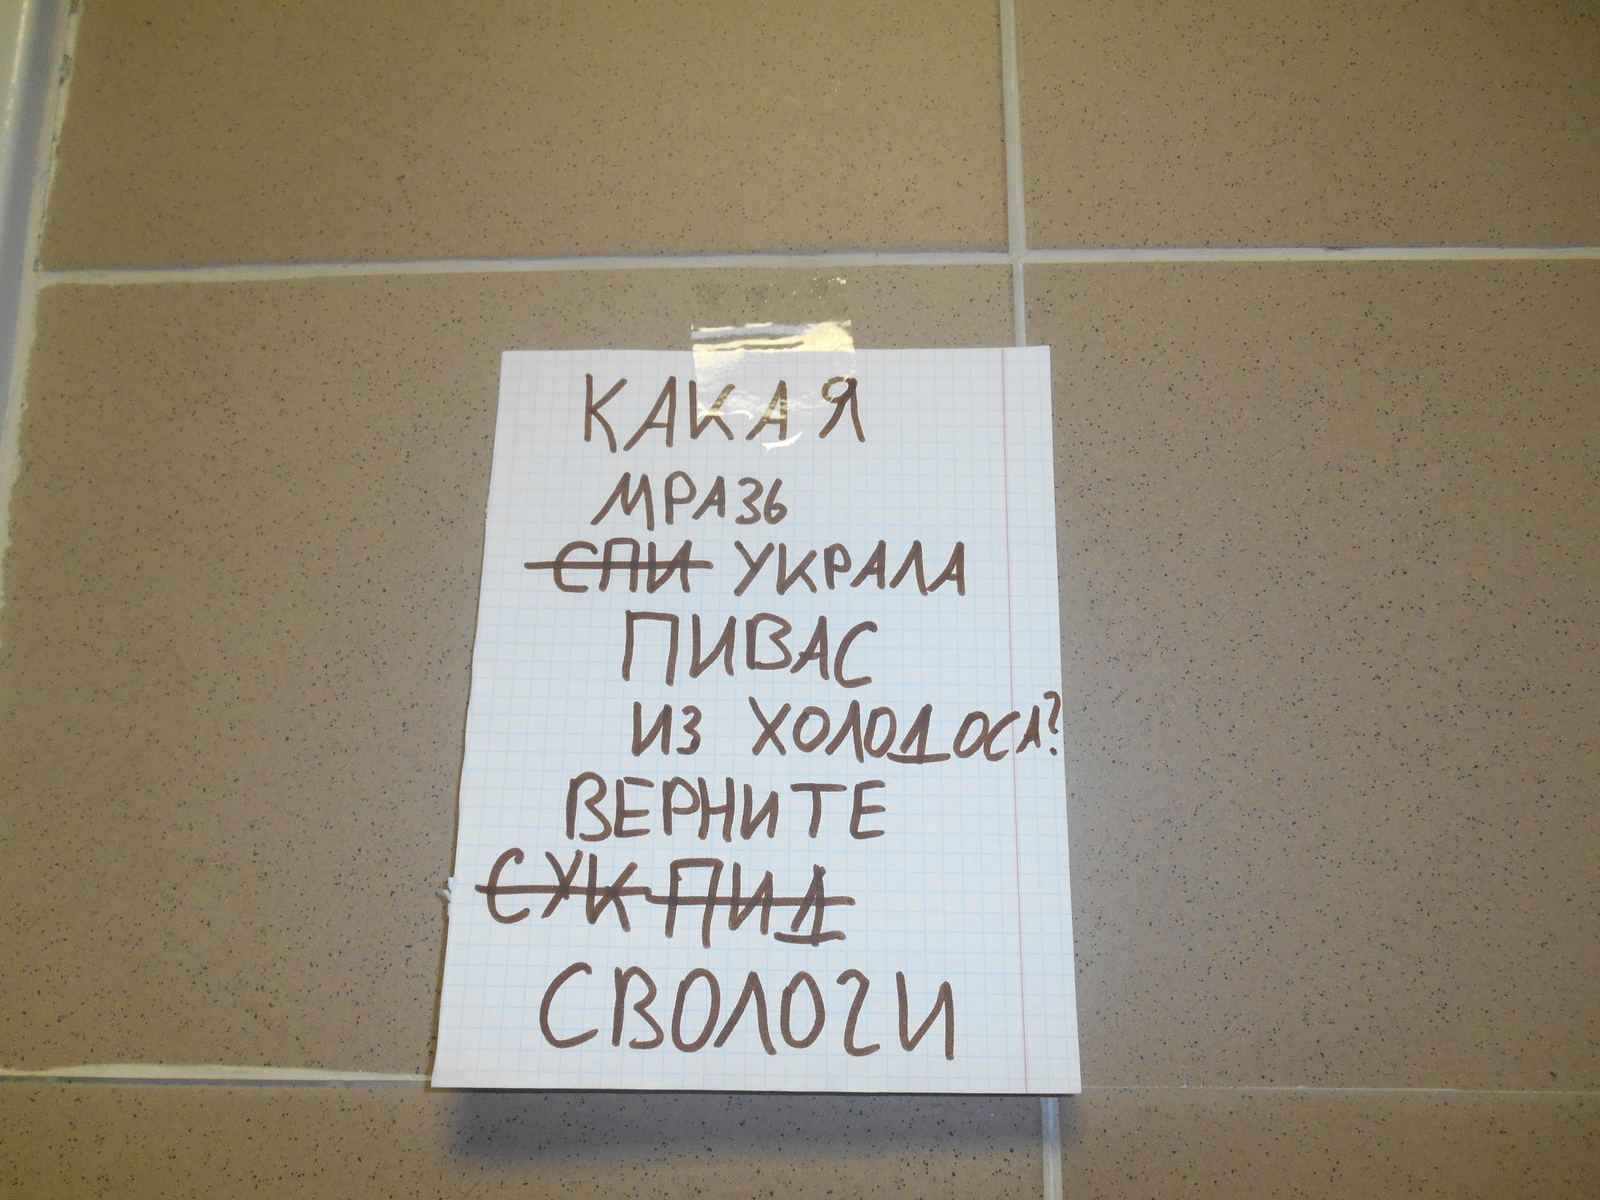 КАКАЯ
МРАЗЬ
СПИ УКРАЛА
ПИВАС
ИЗ ХОЛОДОСА?
ВЕРНИТЕ
СУК ПИД
СВОЛОГИ